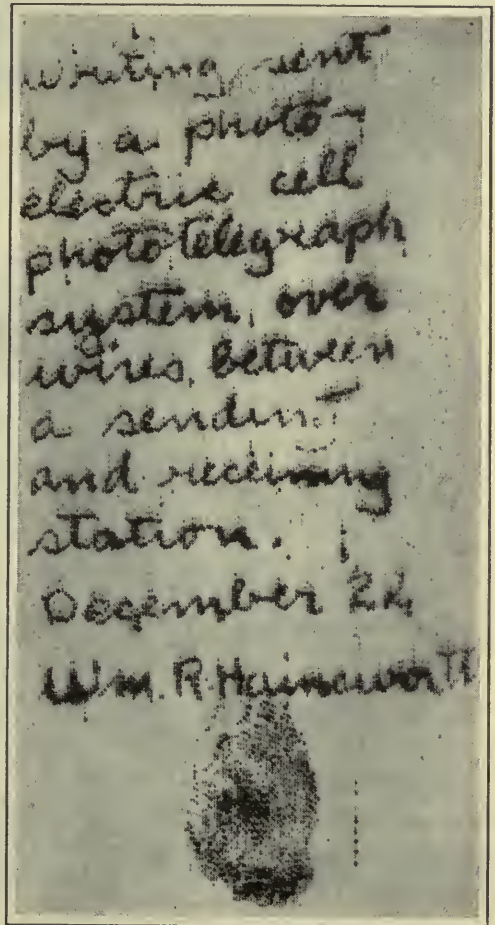 writing sent
by a photo-
electric cell
phototelegraph
system, over
wires, between
a sending
and receiving
station.
December 24
Wm. R. Hainsworth